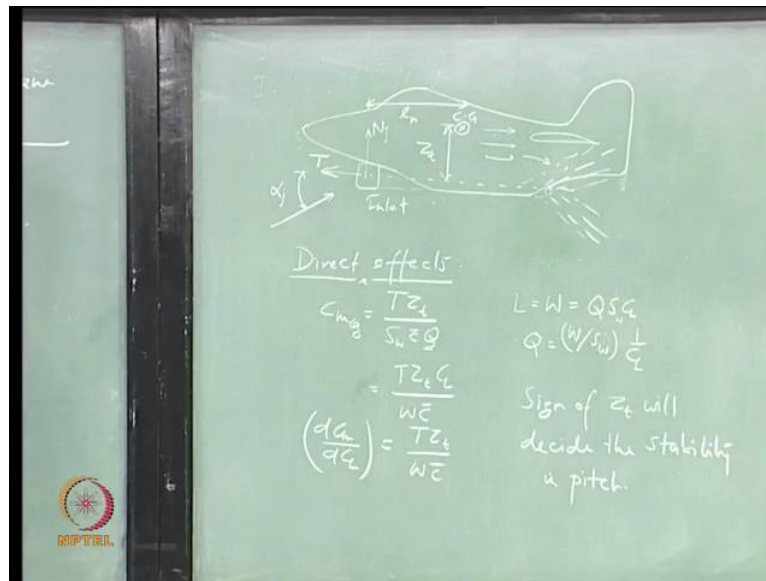 C.G
l_n
N_j
Z_t
T
α_j
Inlet
Direct effects:
C_{m_{cg}} = T Z_t / S_w c̄ Q
= T Z_t C_L / W c̄
(dC_m / dC_L) = T Z_t / W c̄
L = W = Q S_w C_L
Q = (W/S_w) 1/C_L
Sign of Z_t will
decide the stability
in pitch.
NPTEL